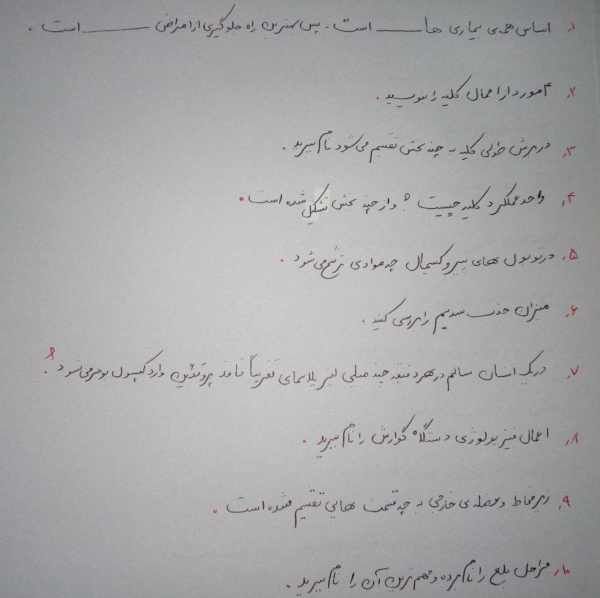 ۱. اساس همه‌ی بیماری ها ______ است. پس بهترین راه جلوگیری از امراض ______ است.
۲. ۴ مورد از اعمال کلیه را بنویسید.
۳. در برش طولی کلیه به چند بخش تقسیم می‌شود نام ببرید.
۴. واحد عملکرد کلیه چیست ؟ و از چند بخش تشکیل شده است.
۵. در توبول های پروکسیمال چه موادی ترشح می‌شود.
۶. میزان جذب سدیم را بررسی کنید.
۷. در یک انسان سالم در هر دقیقه چند میلی لیتر پلاسمای تقریباً فاقد پروتئین وارد کپسول بومن می‌شود؟
۸. اعمال فیزیولوژی دستگاه گوارش را نام ببرید.
۹. زیر مخاط و عضله‌ی خارجی به چه قسمت هایی تقسیم شده است.
۱۰. مراحل بلع را نام برده و مهم ترین آن را نام ببرید.